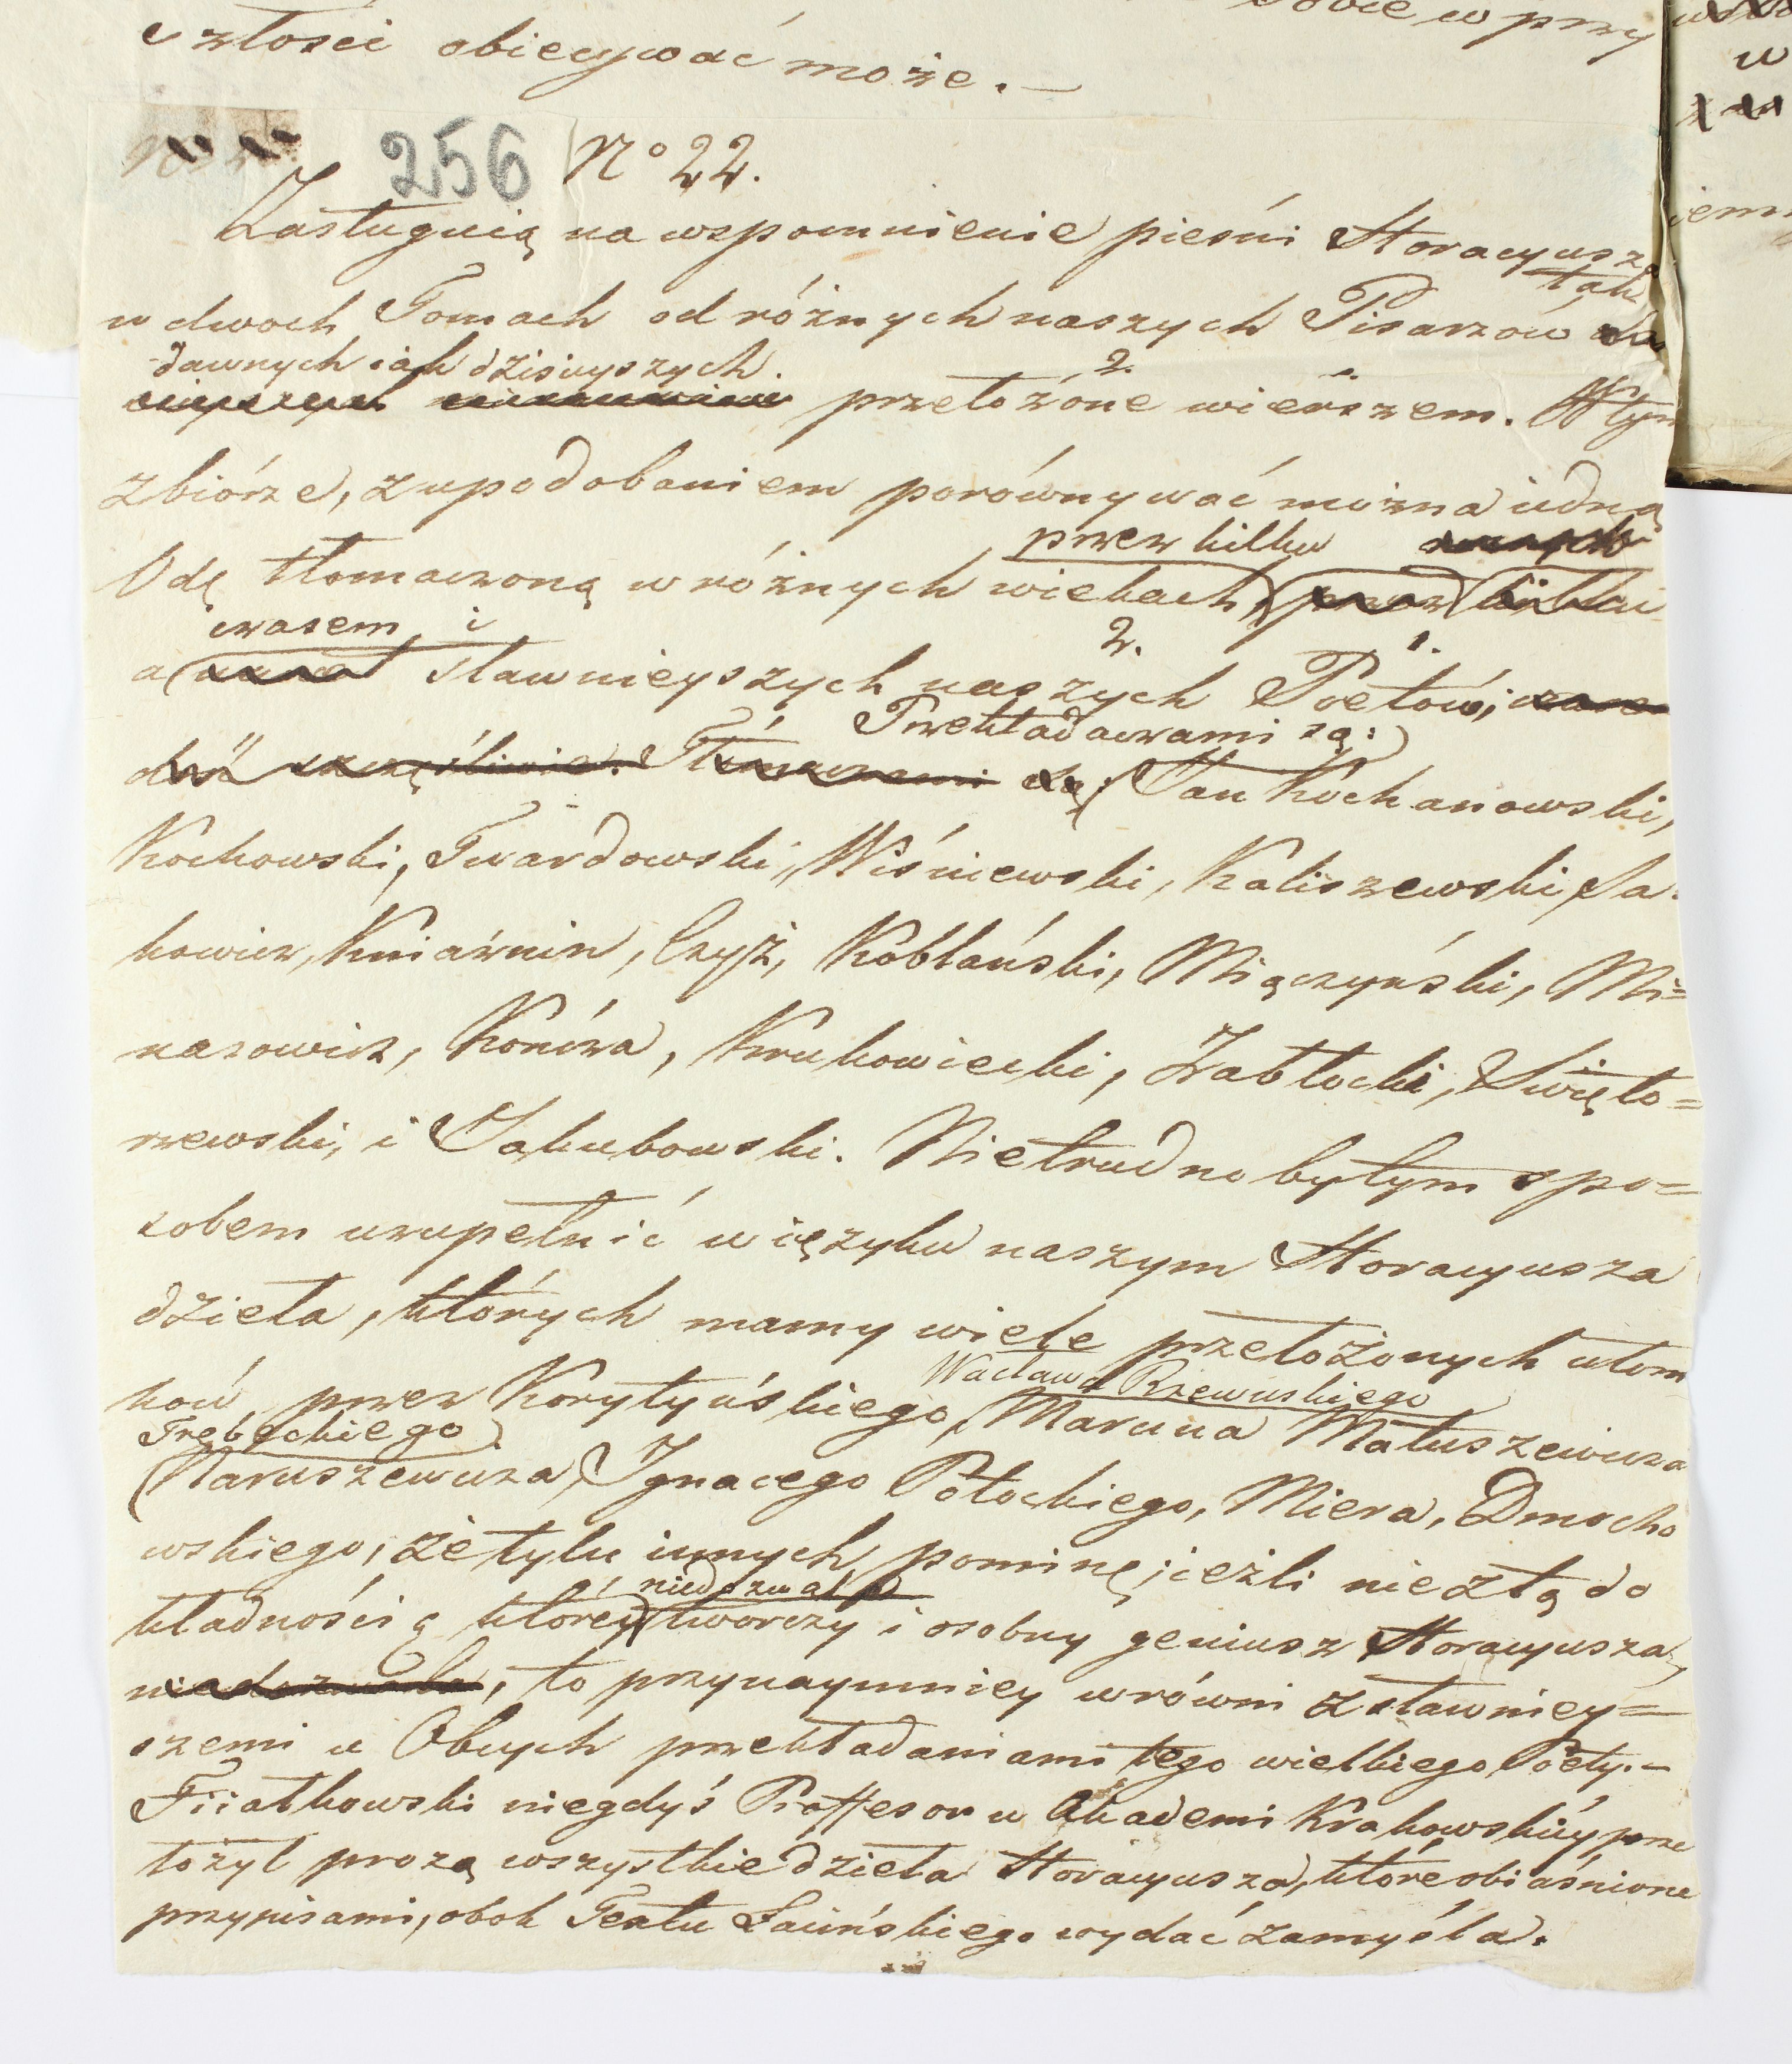 w przy
szłości obiecywać może. —
256 N° 22.
Zasługuią na wspomnienie pieśni Horacyusza
tak
w dwoch Tomach od różnych naszych Pisarzow
dawnych iak dzisieyszych.
2.
przełożone wierszem. W tym
zbiórze, z upodobaniem porównywać można iedną
przez kilku
Odę tłomaczoną w różnych wiekach,
czasem i
2. 1.
a sławnieyszych naszych Poetów;
Przekładaczami są:
Jan Kochanowski,
Kochowski, Twardowski, Wiśniewski, Kaliszewski, Sa-
kowicz, Kniaźnin, Czyż, Kobłański, Miączyński, Mi=
nasowicz, Kończa, Krukowiecki, Zabłocki, Święto=
rzewski, i Jakubowski. Nietrudno by tym spo=
sobem uzupełnić w ięzyku naszym Horacyusza
dzieła, których mamy wiele przełożonych ułom
Wacława Rzewuskiego
ków przez Korytyńskiego, Marcina Matuszewicza
Trębeckiego
Naruszewicza, Ignacego Potockiego, Miera, Dmocho
wskiego, że tylu innych pominę; ieżli nie z tą do
niedozwalał
kładnością któréy tworczy i osobny geniusz Horacyusza,
, to przynaymniey wrówni z sławniey=
szemi u Obcych przekładaniami tego wielkiego Poety. —
Fiiałkowski niegdyś Professor w Akademi Krakowskiéy prze
łożył prozą wszystkie dzieła Horacyusza, które obiaśnione
przypisami, obok Textu Łacińskiego wydać zamyśla.